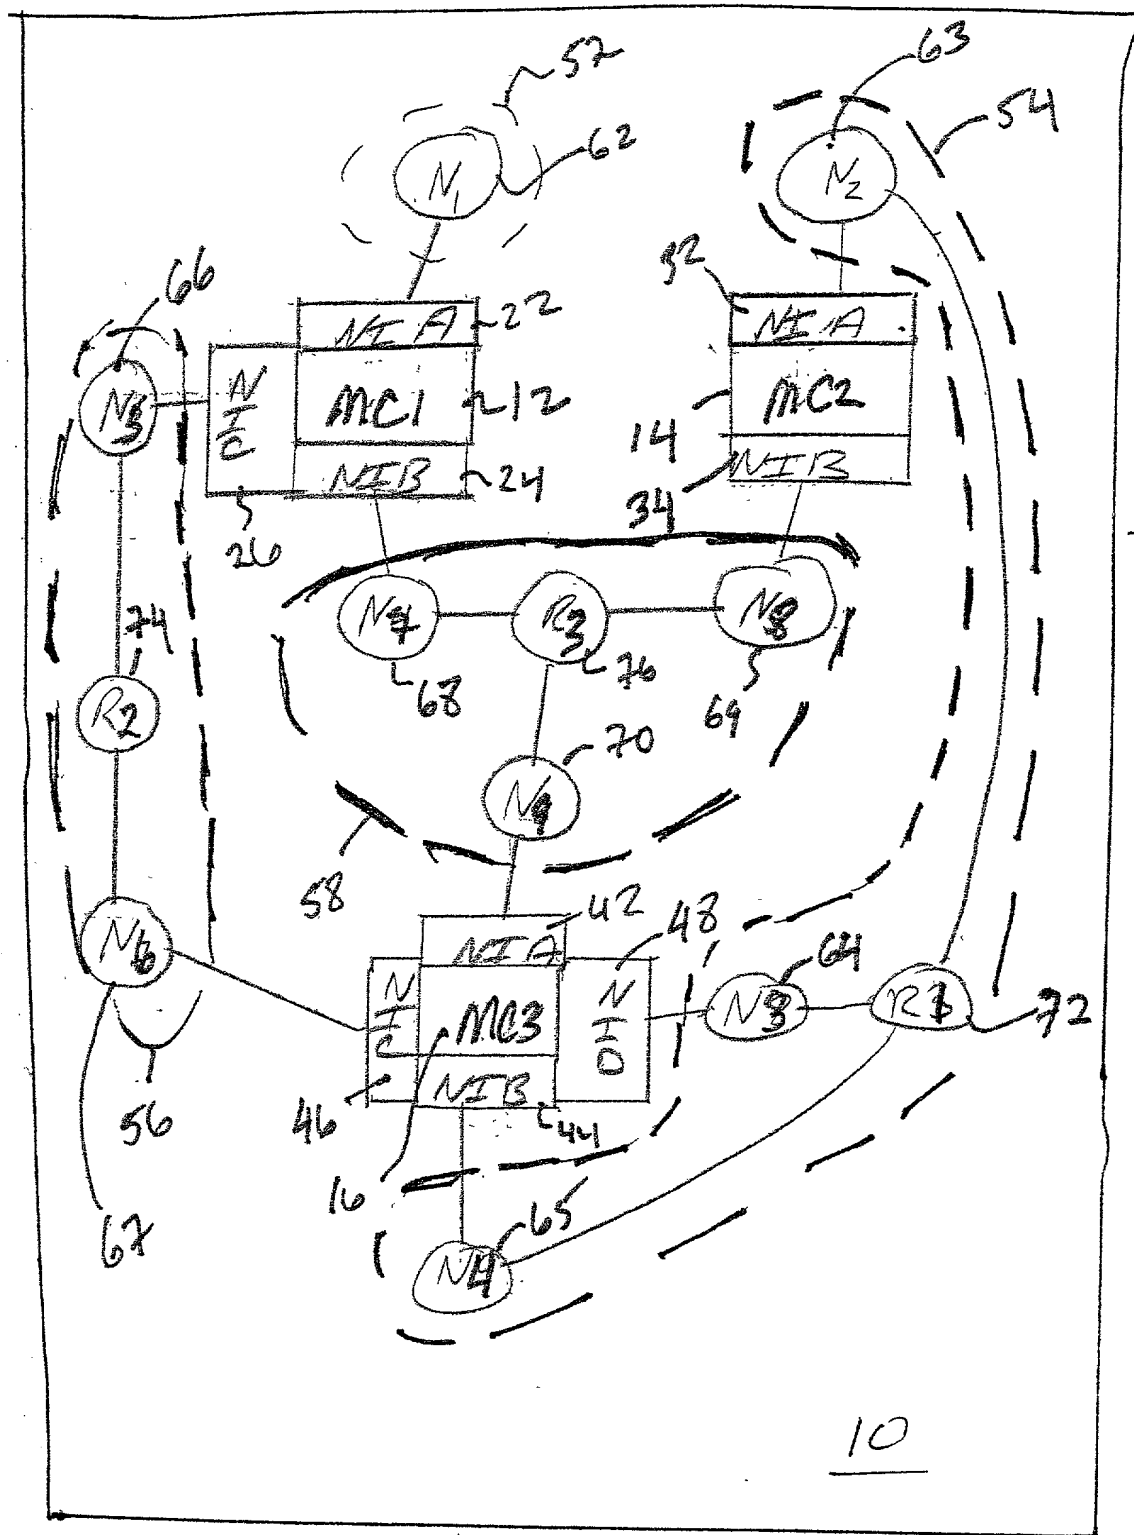 52
63
54
N1
62
N2
66
32
NIA
22
NIA
N5
NIC
MC1
12
MC2
14
NIB
24
NIB
34
26
N7
R3
N8
74
68
76
69
R2
70
N9
58
42
48
NIA
64
N6
NIC
MC3
NID
N3
R1
72
NIB
46
44
56
16
65
67
N4
10